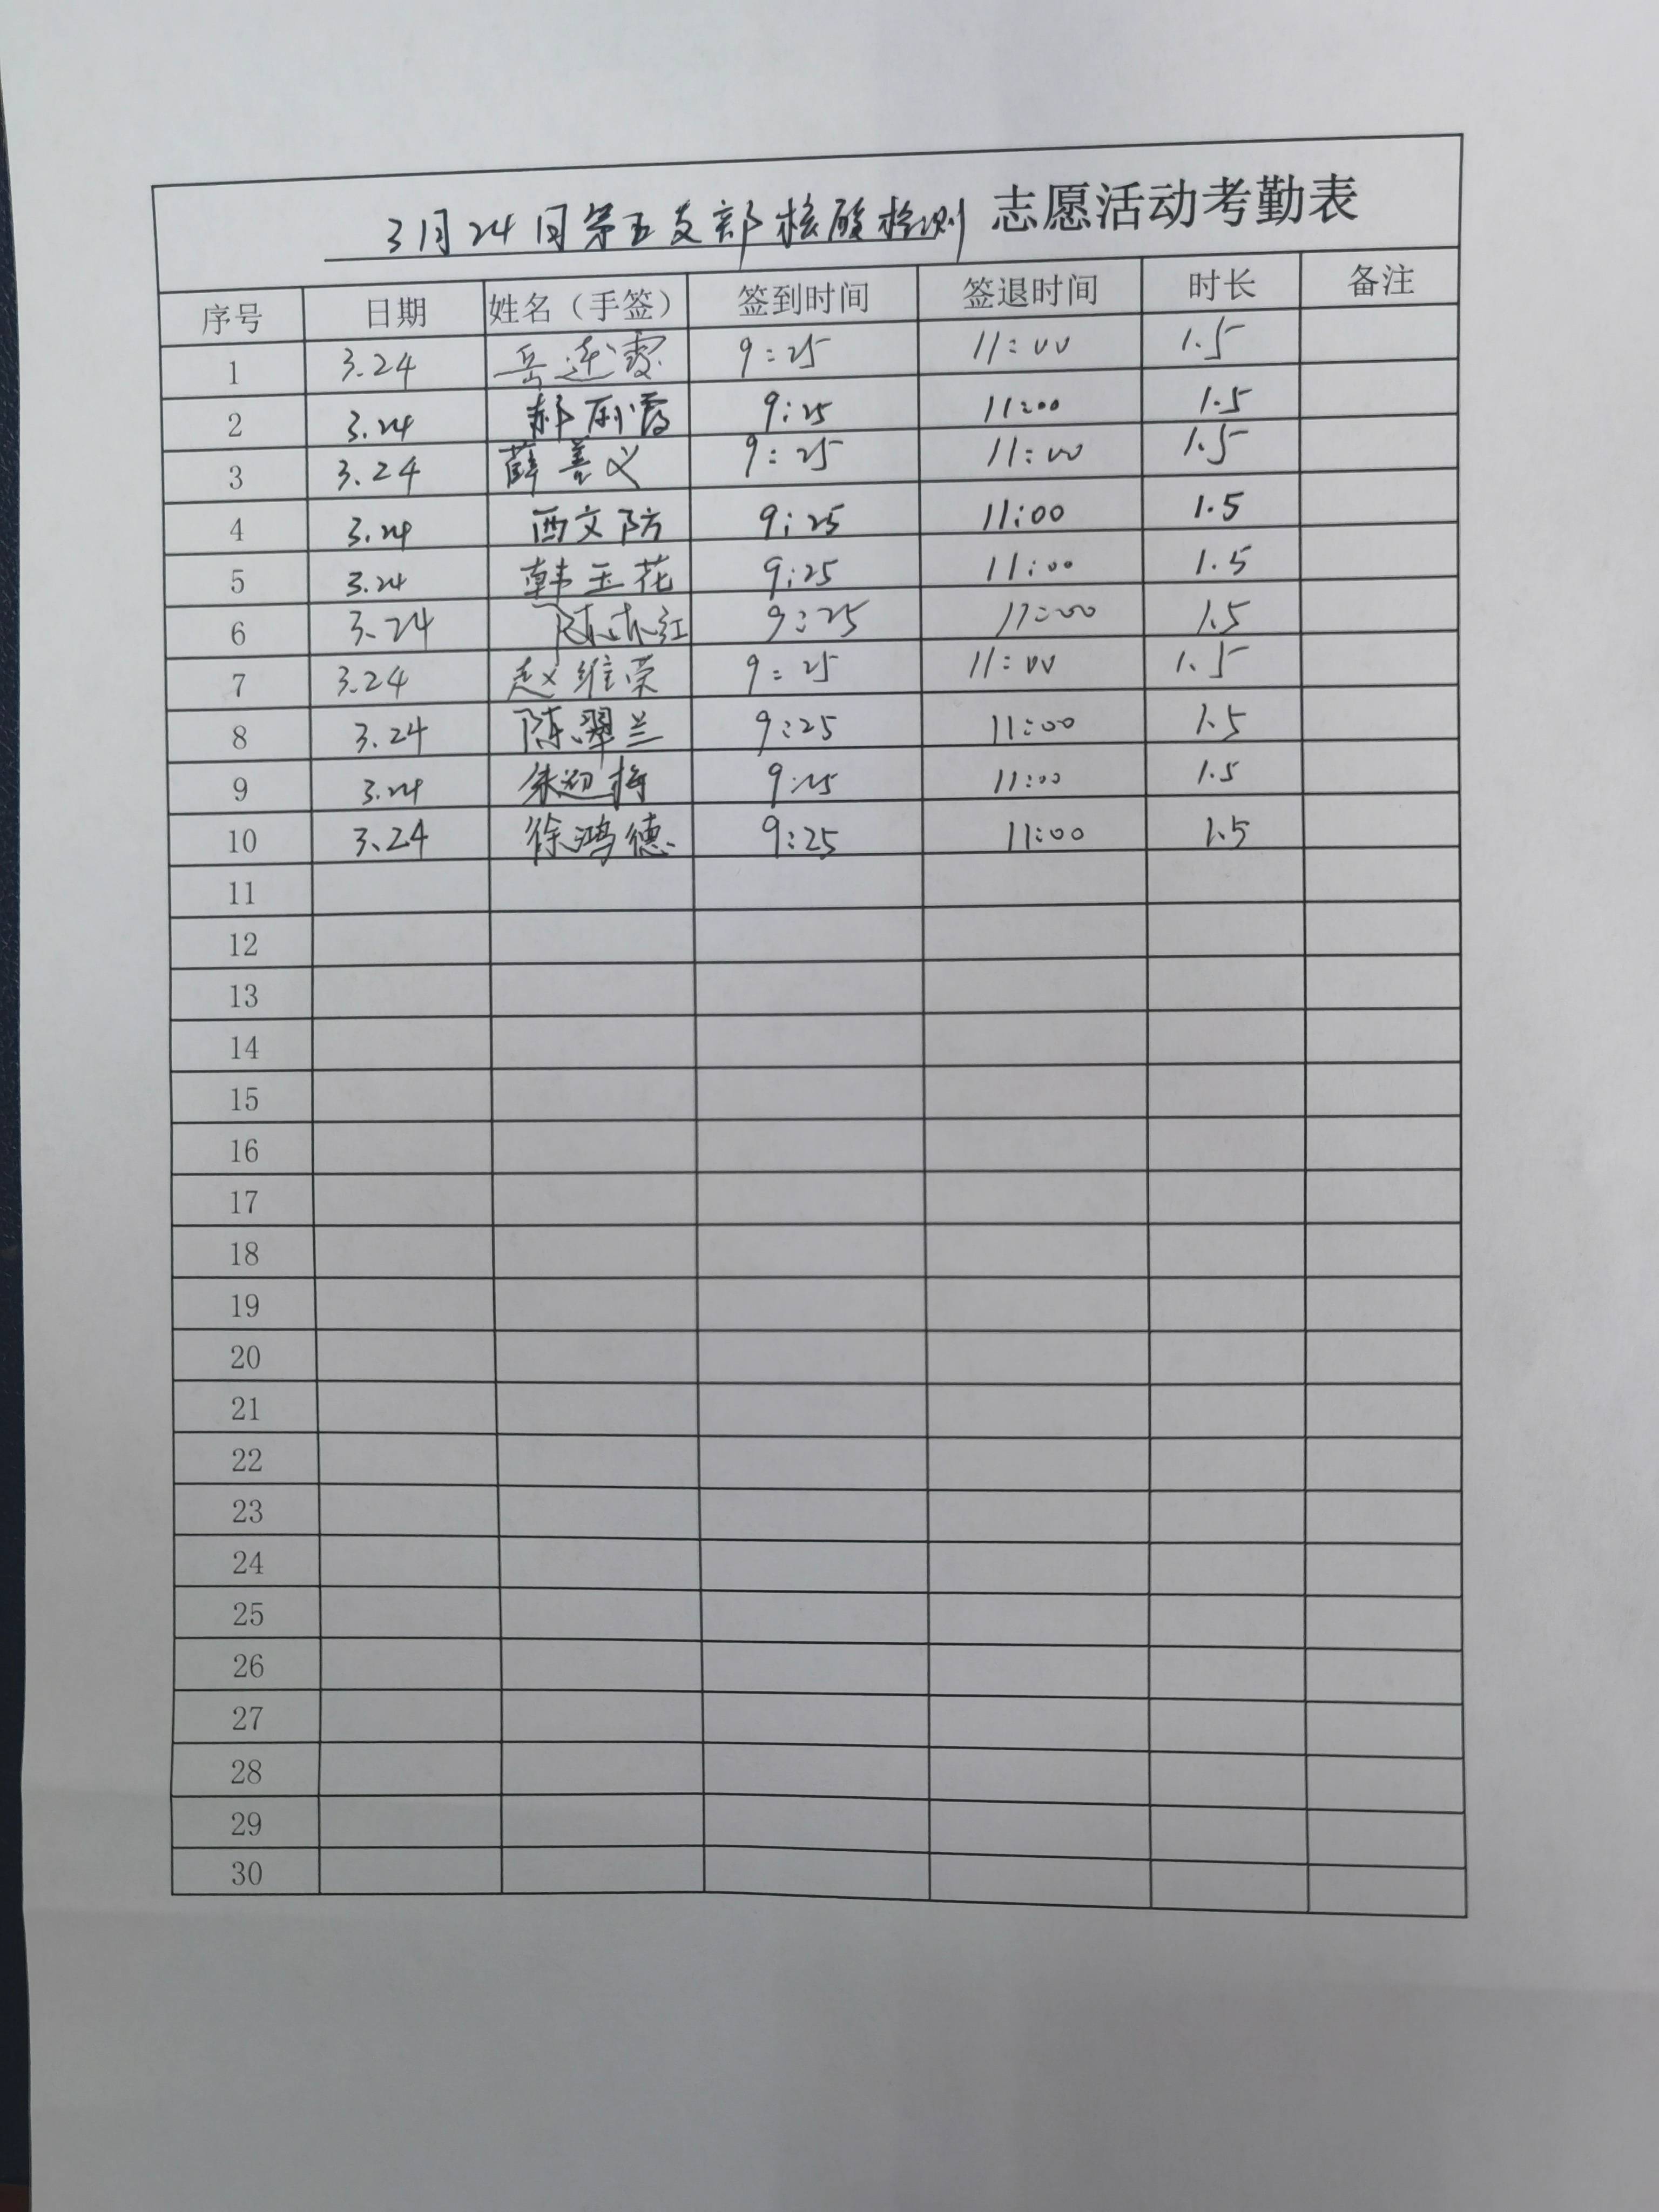 3月24日第五支部核酸检测 志愿活动考勤表
序号 日期 姓名（手签） 签到时间 签退时间 时长 备注
1 3.24 岳连霞 9:25 11:00 1.5
2 3.24 郝丽霞 9:25 11:00 1.5
3 3.24 薛善义 9:25 11:00 1.5
4 3.24 西文防 9:25 11:00 1.5
5 3.24 韩玉花 9:25 11:00 1.5
6 3.24 9:25 11:00 1.5
7 3.24 赵维荣 9:25 11:00 1.5
8 3.24 陈翠兰 9:25 11:00 1.5
9 3.24 朱迎梅 9:25 11:00 1.5
10 3.24 徐鸿德 9:25 11:00 1.5
11
12
13
14
15
16
17
18
19
20
21
22
23
24
25
26
27
28
29
30